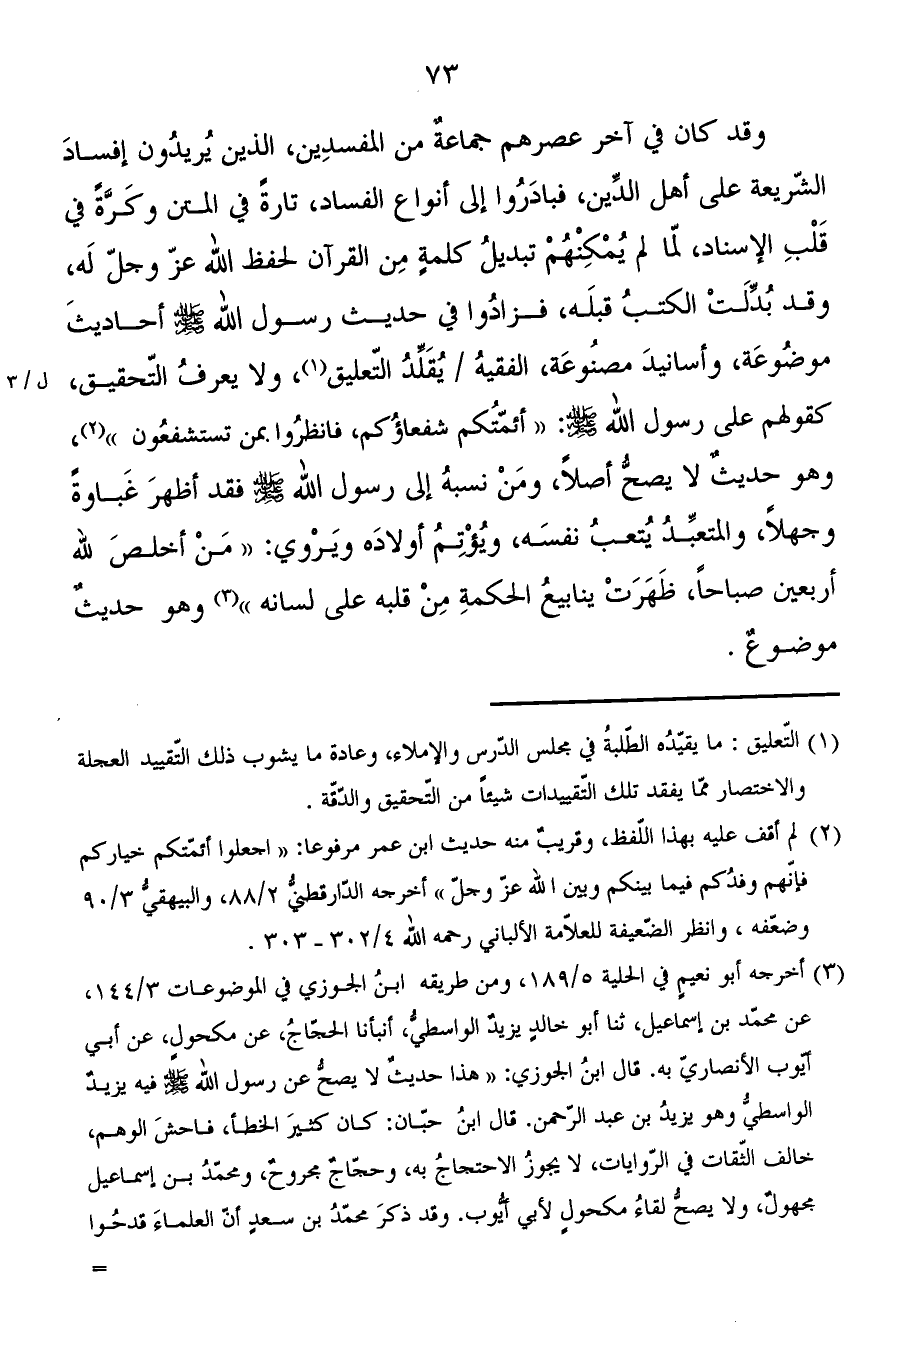 ٧٣
وقد كان في آخر عصرهم جماعةٌ من المفسدِين، الذين يُريدُون إفسادَ
الشّريعة على أهل الدِّين، فبادَرُوا إلى أنواع الفساد، تارةً في المتن وكَرَّةً في
قَلْبِ الإسناد، لمّا لم يُمْكِنْهُمْ تبديلُ كلمةٍ مِن القرآن لحفظ الله عزّ وجلّ لَه،
وقد بُدِّلَتْ الكتبُ قبلَه، فزادُوا في حديث رسول الله ﷺ أحاديثَ
موضُوعَة، وأسانيدَ مصنُوعَة، الفقيهُ / يُقَلِّدُ التّعليق(١)، ولا يعرفُ التّحقيق، ل/٣
كقولهم على رسول الله ﷺ: « أئمّتُكم شفعاؤُكم، فانظرُوا بمن تستشفعُون »(٢)،
وهو حديثٌ لا يصحُّ أصلاً، ومَنْ نسبهُ إلى رسول الله ﷺ فقد أظهرَ غَباوةً
وجهلاً، والمتعبِّدُ يُتعبُ نفسَه، ويُؤْتِمُ أولادَه ويَرْوي: « مَنْ أخلصَ لله
أربعين صباحاً، ظَهَرَتْ ينابيعُ الحكمةِ مِنْ قلبه على لسانه »(٣) وهو حديثٌ
موضوعٌ .
(١) التّعليق : ما يقيّدُه الطّلبةُ في مجلس الدّرس والإملاء، وعادة ما يشوب ذلك التّقييد العجلة
والاختصار ممّا يفقد تلك التّقييدات شيئاً من التّحقيق والدّقّة .
(٢) لم أقف عليه بهذا اللّفظ، وقريبٌ منه حديث ابن عمر مرفوعا: « اجعلوا أئمّتكم خياركم
فإنّهم وفدُكم فيما بينكم وبين الله عزّ وجلّ » أخرجه الدّارقطنيُّ ٨٨/٢، والبيهقيُّ ٩٠/٣
وضعّفه ، وانظر الضّعيفة للعلاّمة الألباني رحمه الله ٣٠٢/٤ - ٣٠٣ .
(٣) أخرجه أبو نعيمٍ في الحلية ١٨٩/٥، ومن طريقه ابنُ الجوزي في الموضوعات ١٤٤/٣،
عن محمّد بن إسماعيل، ثنا أبو خالدٍ يزيدُ الواسطيُّ، أنبأنا الحجّاجُ، عن مكحولٍ، عن أبي
أيّوب الأنصاريّ به. قال ابنُ الجوزي: « هذا حديثٌ لا يصحُّ عن رسول الله ﷺ فيه يزيدُ
الواسطيُّ وهو يزيدُ بن عبد الرّحمن. قال ابنُ حبّان: كان كثيرَ الخطأ، فاحشَ الوهم،
خالف الثّقات في الرّوايات، لا يجوزُ الاحتجاجُ به، وحجّاجٌ مجروحٌ، ومحمّدُ بن إسماعيل
مجهولٌ، ولا يصحُّ لقاءُ مكحولٍ لأبي أيُّوب. وقد ذكرَ محمّدُ بن سعدٍ أنّ العلماءَ قدحُوا
=